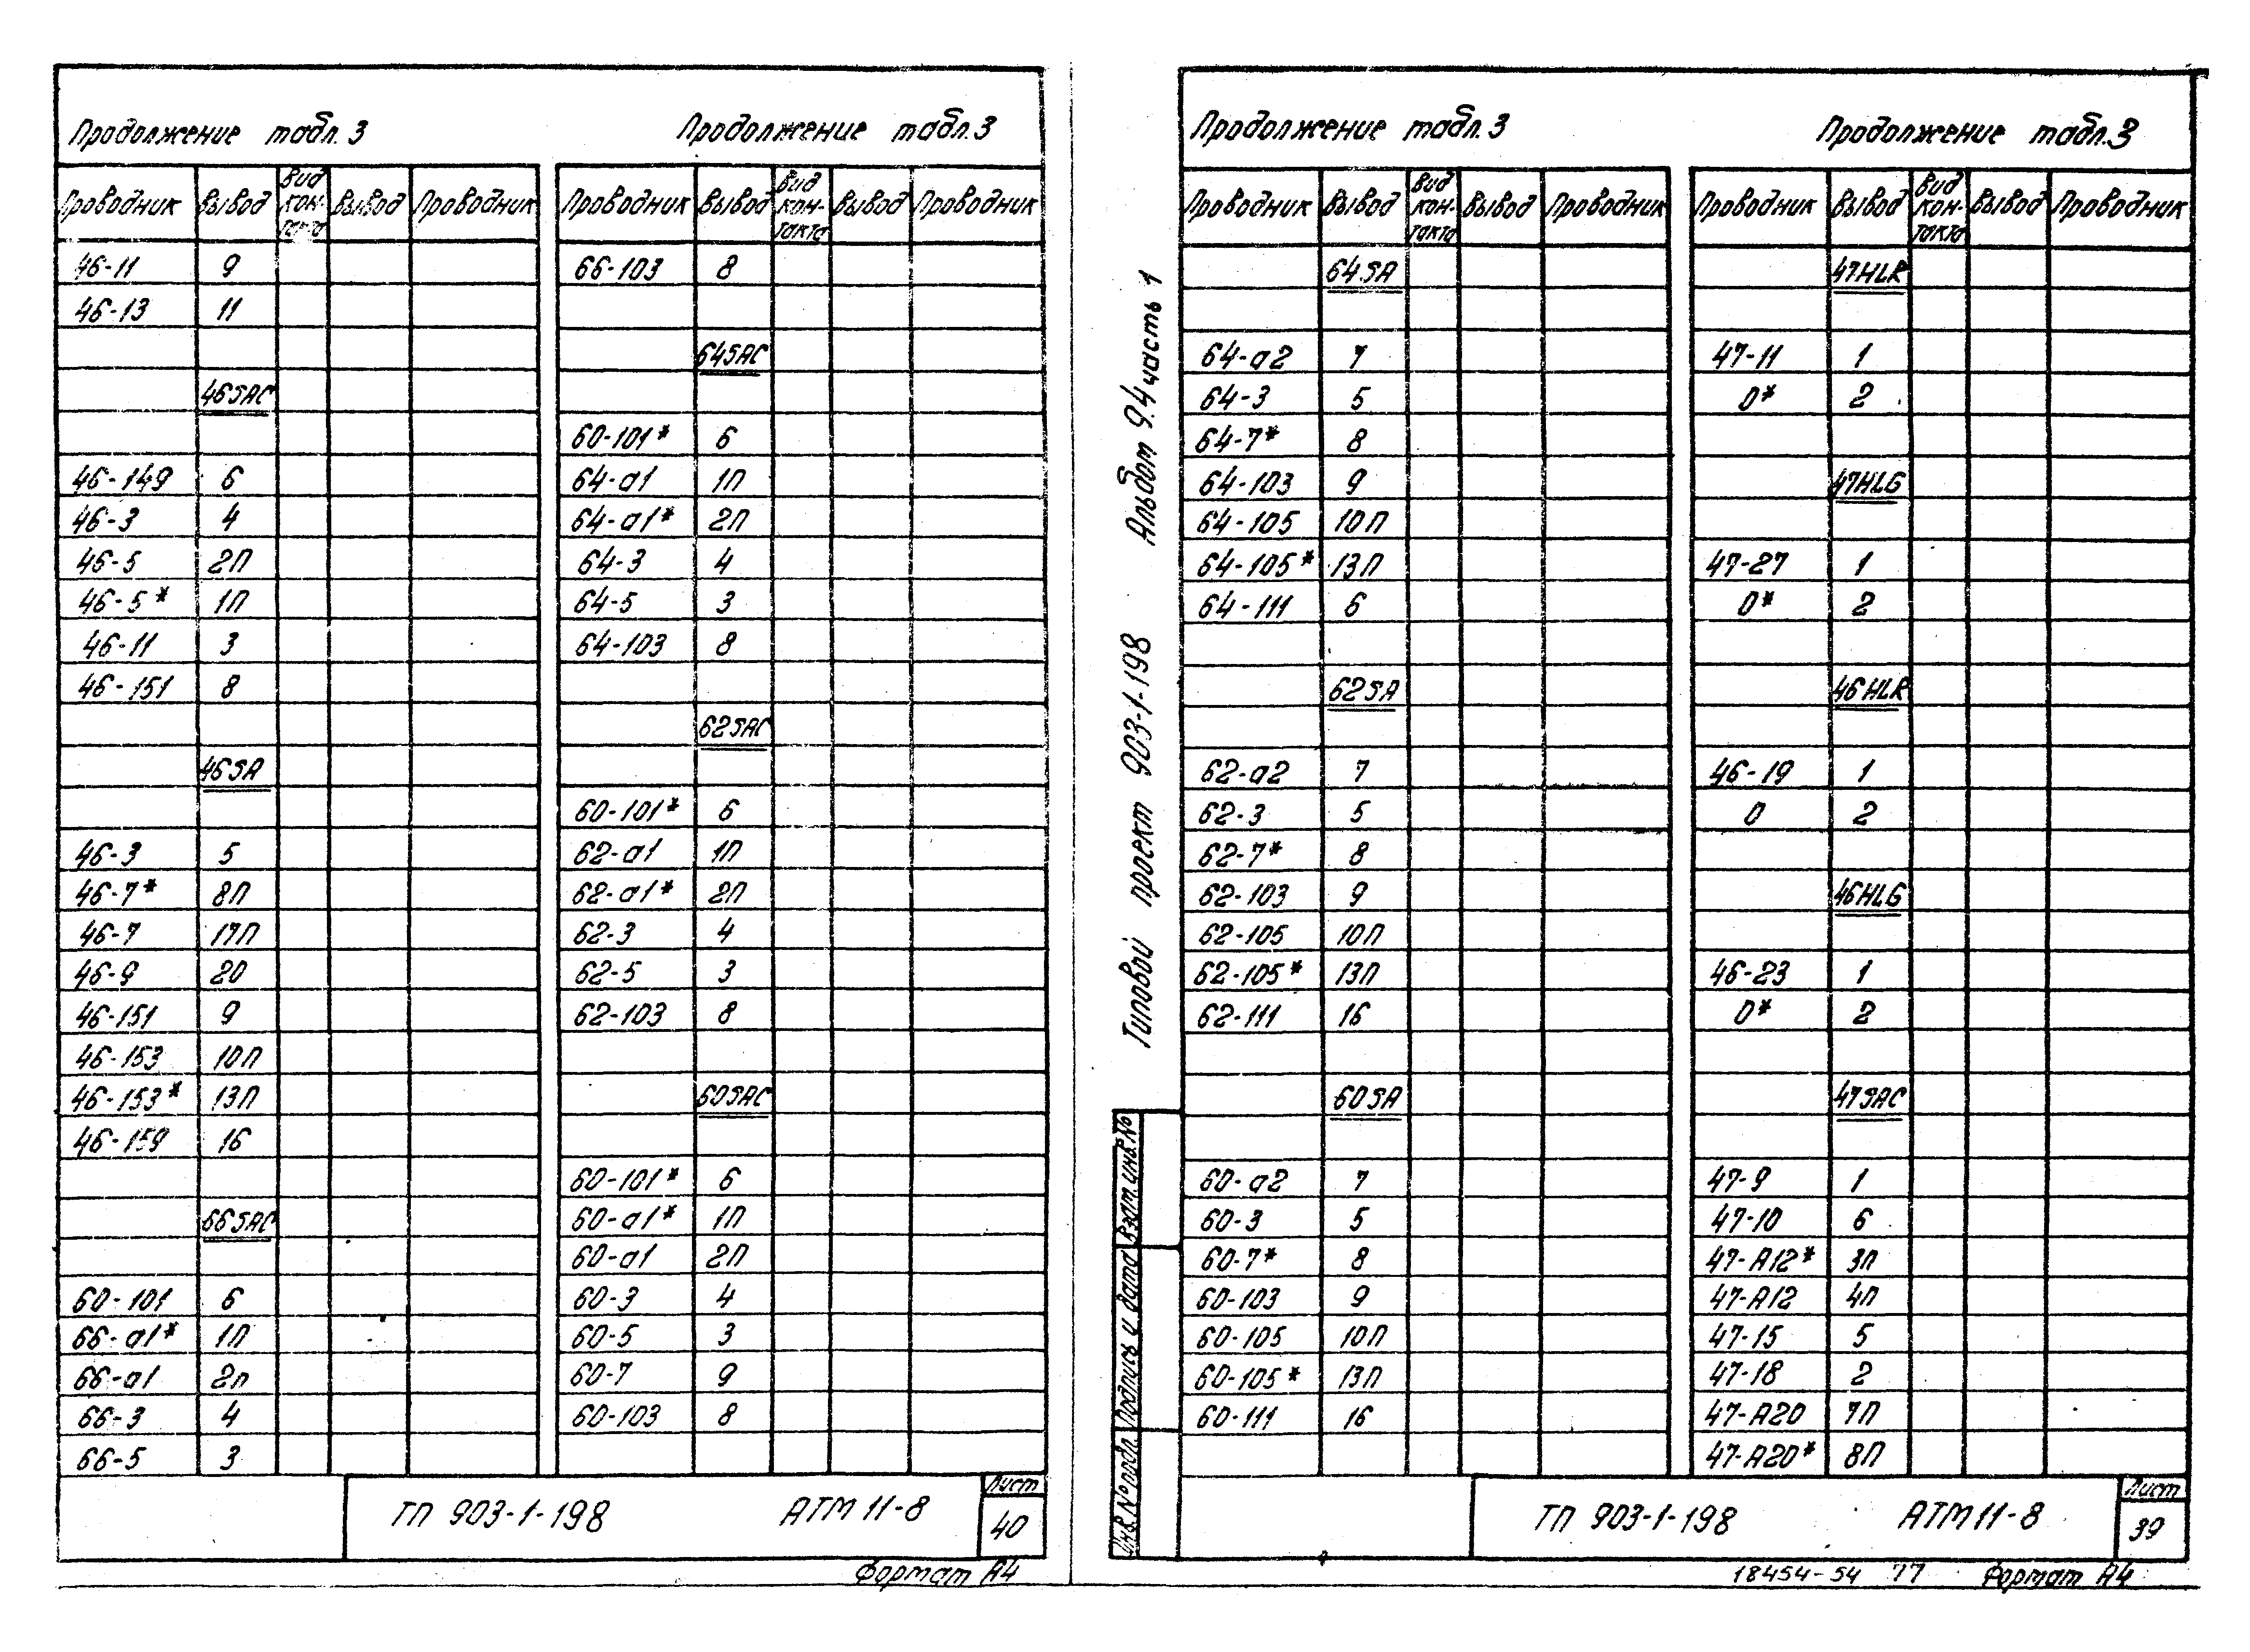 Продолжение табл. 3
Проводник Вывод Вид кон- такта Вывод Проводник
46-11 9
46-13 11
46SAC
46-149 6
46-3 4
46-5 2П
46-5* 1П
46-11 3
46-151 8
46SA
46-3 5
46-7* 8П
46-7 17П
46-9 20
46-151 9
46-153 10П
46-153* 13П
46-159 16
66SAC
60-101 6
66-а1* 1П
66-а1 2п
66-3 4
66-5 3
Продолжение табл. 3
Проводник Вывод Вид кон- такта Вывод Проводник
66-103 8
64SAC
60-101* 6
64-а1 1П
64-а1* 2П
64-3 4
64-5 3
64-103 8
62SAC
60-101* 6
62-а1 1П
62-а1* 2П
62-3 4
62-5 3
62-103 8
60SAC
60-101* 6
60-а1* 1П
60-а1 2П
60-3 4
60-5 3
60-7 9
60-103 8
ТП 903-1-198 АТМ 11-8
Лист
40
Формат А4
Типовой проект 903-1-198 Альбом 9.4 часть 1
Продолжение табл. 3
Проводник Вывод Вид кон- такта Вывод Проводник
64SA
64-а2 7
64-3 5
64-7* 8
64-103 9
64-105 10П
64-105* 13П
64-111 6
62SA
62-а2 7
62-3 5
62-7* 8
62-103 9
62-105 10П
62-105* 13П
62-111 16
60SA
60-а2 7
60-3 5
60-7* 8
60-103 9
60-105 10П
60-105* 13П
60-111 16
Продолжение табл. 3
Проводник Вывод Вид кон- такта Вывод Проводник
47HLR
47-11 1
0* 2
47HLG
47-27 1
0* 2
46HLR
46-19 1
0 2
46HLG
46-23 1
0* 2
47SAC
47-9 1
47-10 6
47-А12* 3п
47-А12 4п
47-15 5
47-18 2
47-А20 7П
47-А20* 8П
Инв. № подл. Подпись и дата Взам. инв. №
ТП 903-1-198 АТМ 11-8
Лист
39
18454-54 77 Формат А4